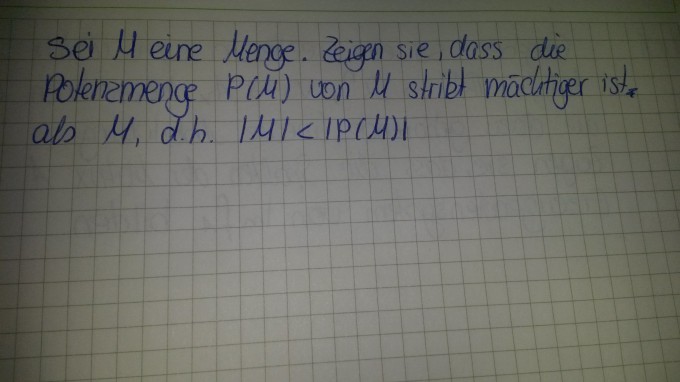 Sei M eine Menge. Zeigen sie, dass die
Potenzmenge P(M) von M strikt mächtiger ist
als M, d.h. |M| < |P(M)|